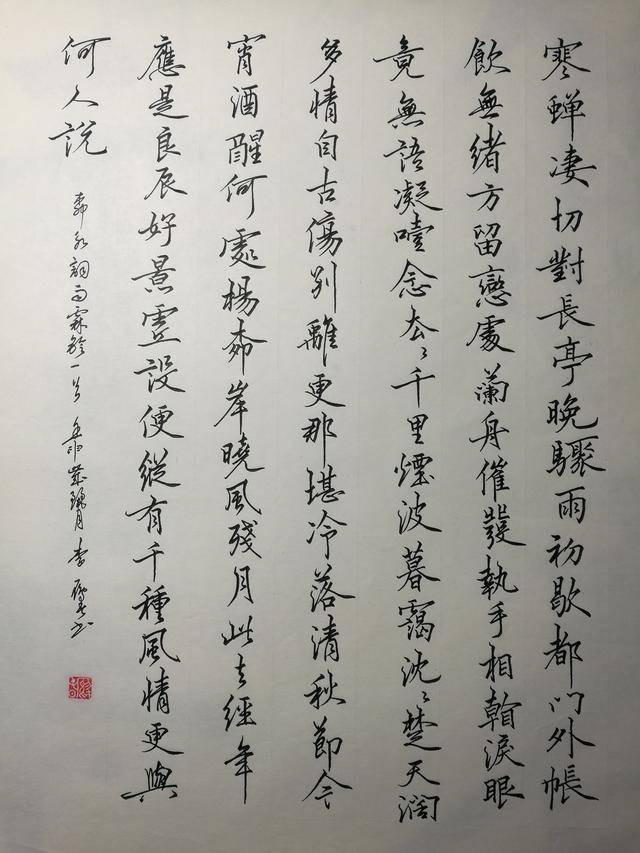 寒蟬凄切對長亭晚驟雨初歇都門外帳
飲無緒方留戀處蘭舟催發執手相看淚眼
竟無語凝噎念去々千里煙波暮靄沈々楚天濶
多情自古傷別離更那堪冷落清秋節今
宵酒醒何處楊柳岸曉風殘月此去經年
應是良辰好景虛設便縱有千種風情更與
何人說
柳永詞雨霖鈴一首 月 李